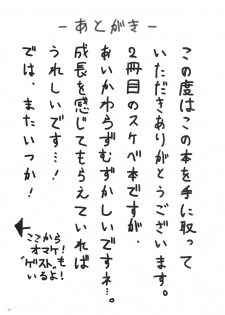 －あとがき－
この度はこの本を手に取って
いただきありがとうございます。
2冊目のスケベ本ですが、
あいかわらずむずかしいですネ…。
成長を感じてもらえていれば
うれしいです…!
では、またいつか!
←ここから
オマケ!
ゲストも
いるよ!